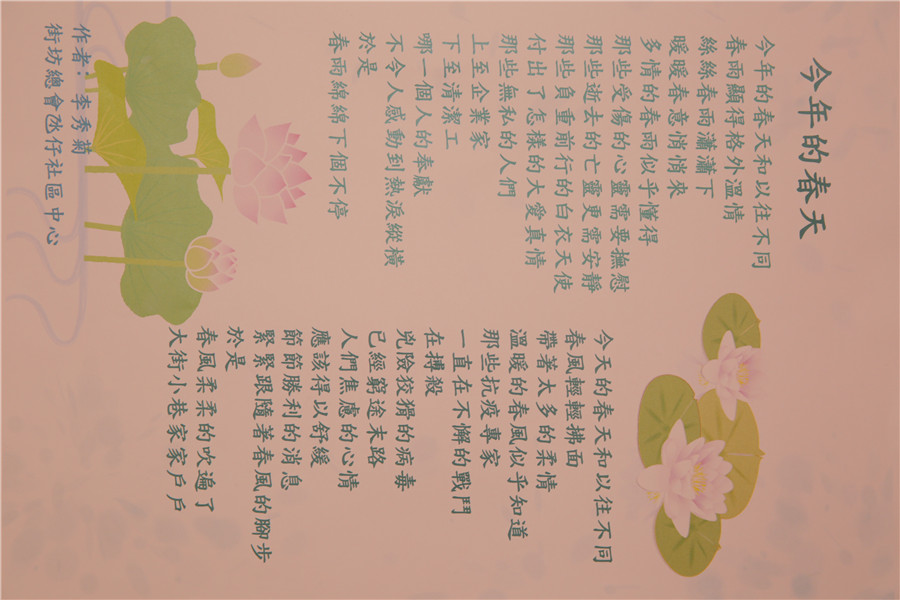 今年的春天
今年的春天和以往不同
春雨顯得格外溫情
絲絲春雨瀟瀟下
暖暖春意悄悄來
多情的春雨似乎懂得
那些受傷的心靈需要撫慰
那些逝去的亡靈更需安靜
那些負重前行的白衣天使
付出了怎樣的大愛真情
那些無私的人們
上至企業家
下至清潔工
哪一個人的奉獻
不令人感動到熱淚縱橫
於是
春雨綿綿下個不停
今天的春天和以往不同
春風輕輕拂面
帶著太多的柔情
溫暖的春風似乎知道
那些抗疫專家
一直在不懈的戰鬥
在搏殺
兇險狡猾的病毒
已經窮途末路
人們焦慮的心情
應該得以舒緩
節節勝利的消息
緊緊跟隨著春風的腳步
於是
春風柔柔的吹遍了
大街小巷家家戶戶
作者：李秀菊
街坊總會氹仔社區中心